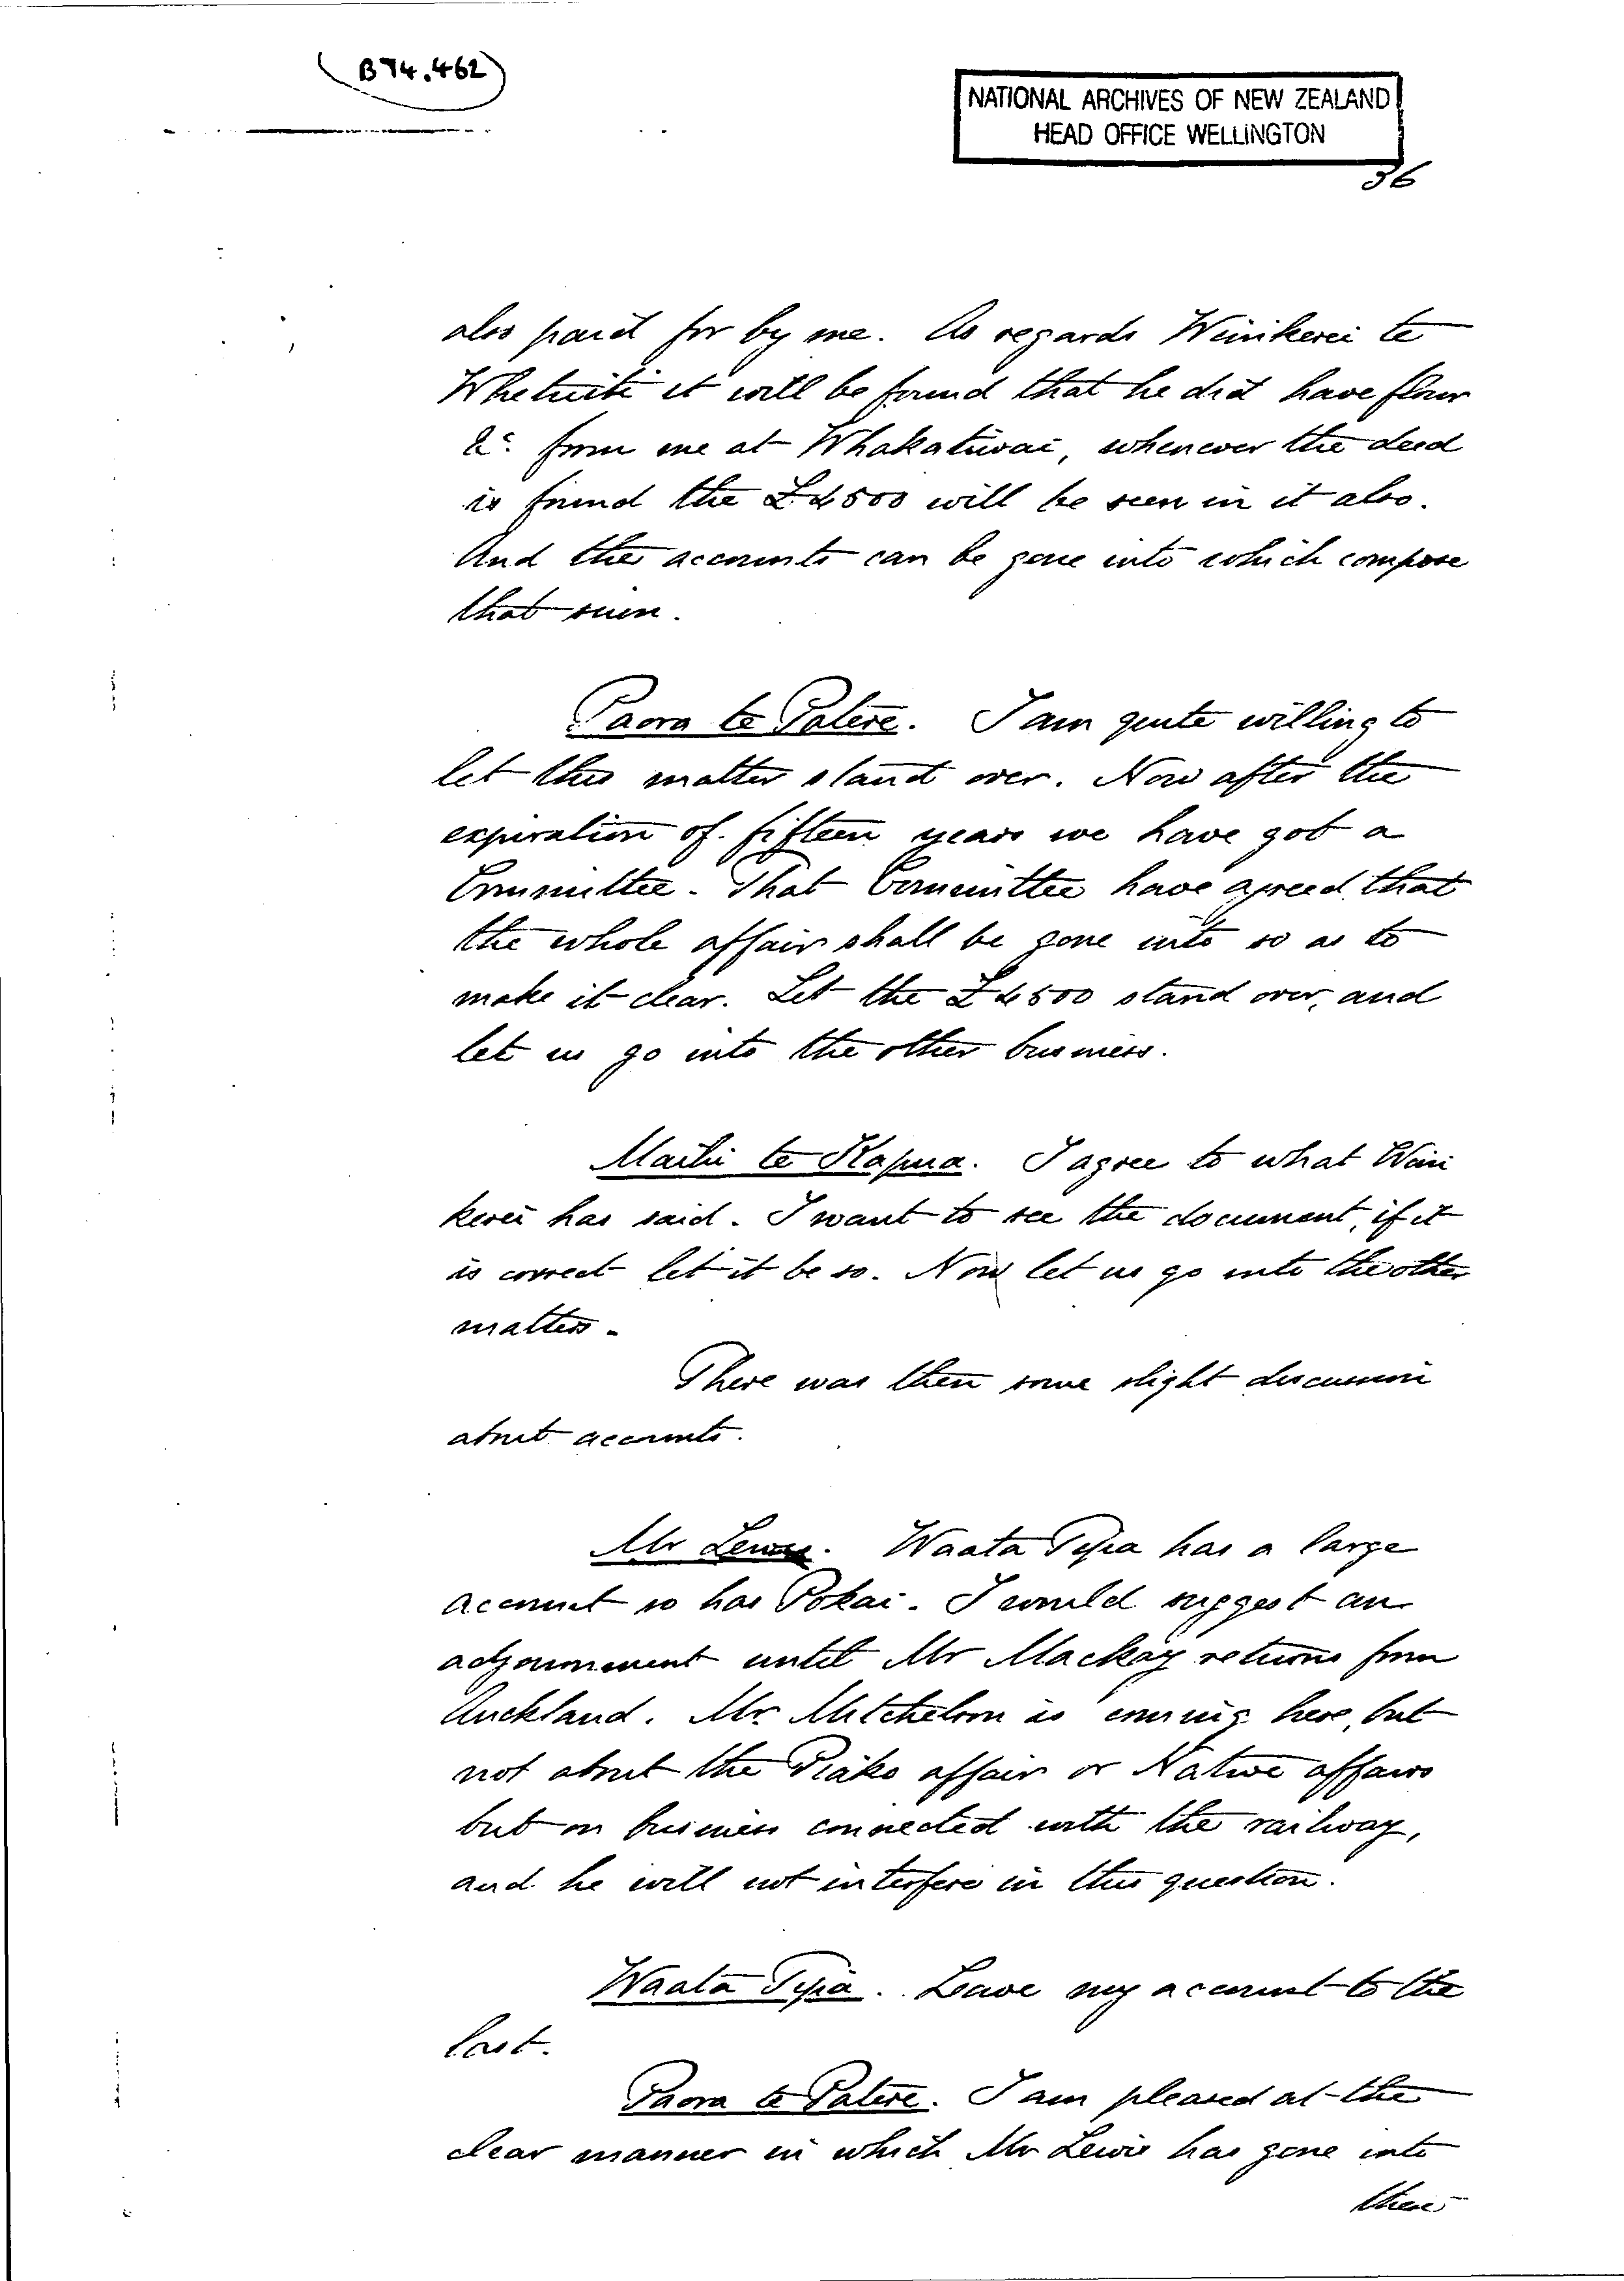 B74.462
NATIONAL ARCHIVES OF NEW ZEALAND
HEAD OFFICE WELLINGTON
36
also paid for by me. As regards Winikerei te
Whetuiti it will be found that he did have flour
&c. from me at Whakatiwai, whenever the deed
is found the £4500 will be seen in it also.
And the accounts can be gone into which compose
that sum.
Paora te Patere. I am quite willing to
let this matter stand over. Now after the
expiration of fifteen years we have got a
Committee. That Committee have agreed that
the whole affair shall be gone into so as to
make it clear. Let the £4500 stand over, and
let us go into the other business.
Maihi te Hapua. I agree to what Wini
kerei has said. I want to see the document, if it
is correct let it be so. Now let us go into the other
matters.
There was then some slight discussion
about accounts.
Mr Lewis. Waata Tipa has a large
account so has Pokai. I would suggest an
adjournment until Mr Mackay returns from
Auckland. Mr. Mitchelson is coming here, but
not about the Piako affair or Native affairs
but on business connected with the railway,
and he will not interfere in this question.
Waata Tipa. Leave my account to the
last.
Paora te Patere. I am pleased at the
clear manner in which Mr Lewis has gone into
these